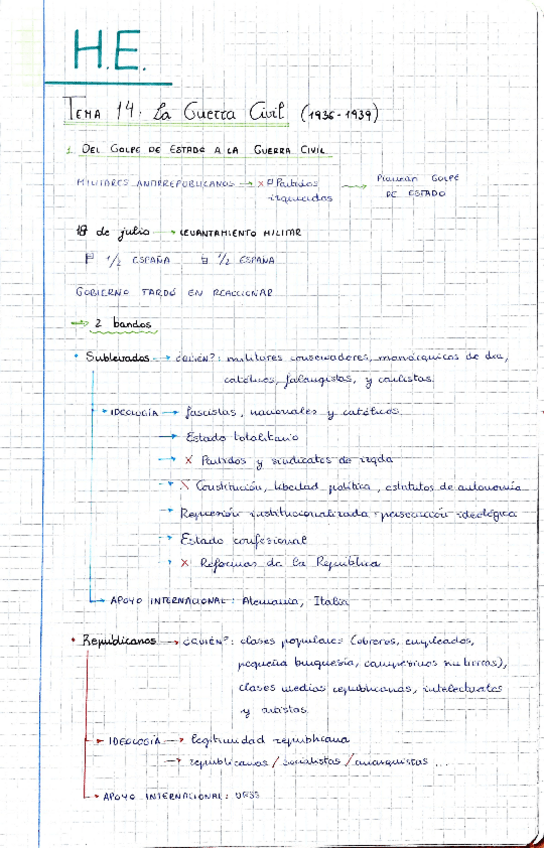 H.E.
TEMA 14. La Guerra Civil (1936-1939)
1. DEL GOLPE DE ESTADO A LA GUERRA CIVIL
MILITARES ANTIRREPUBLICANOS → X Partidos → Planean GOLPE
izquierdas DE ESTADO
18 de julio → LEVANTAMIENTO MILITAR
1/2 ESPAÑA 1/2 ESPAÑA
GOBIERNO TARDÓ EN REACCIONAR
→ 2 bandos
• Sublevados → ¿QUIÉN?: militares conservadores, monárquicos de dra,
católicos, falangistas, y carlistas.
• IDEOLOGÍA → fascistas, nacionales y católicos
→ Estado totalitario
→ X Partidos y sindicatos de izqda
→ X Constitución, libertad política, estatutos de autonomía
→ Represión institucionalizada + persecución ideológica
→ Estado confesional
→ X Reformas de la República
→ APOYO INTERNACIONAL: Alemania, Italia
• Republicanos → ¿QUIÉN?: clases populares (obreros, empleados,
pequeña burguesía, campesinos sin tierras),
clases medias republicanas, intelectuales
y artistas.
→ IDEOLOGÍA → legitimidad republicana
→ republicanos / socialistas / anarquistas ...
→ APOYO INTERNACIONAL: URSS